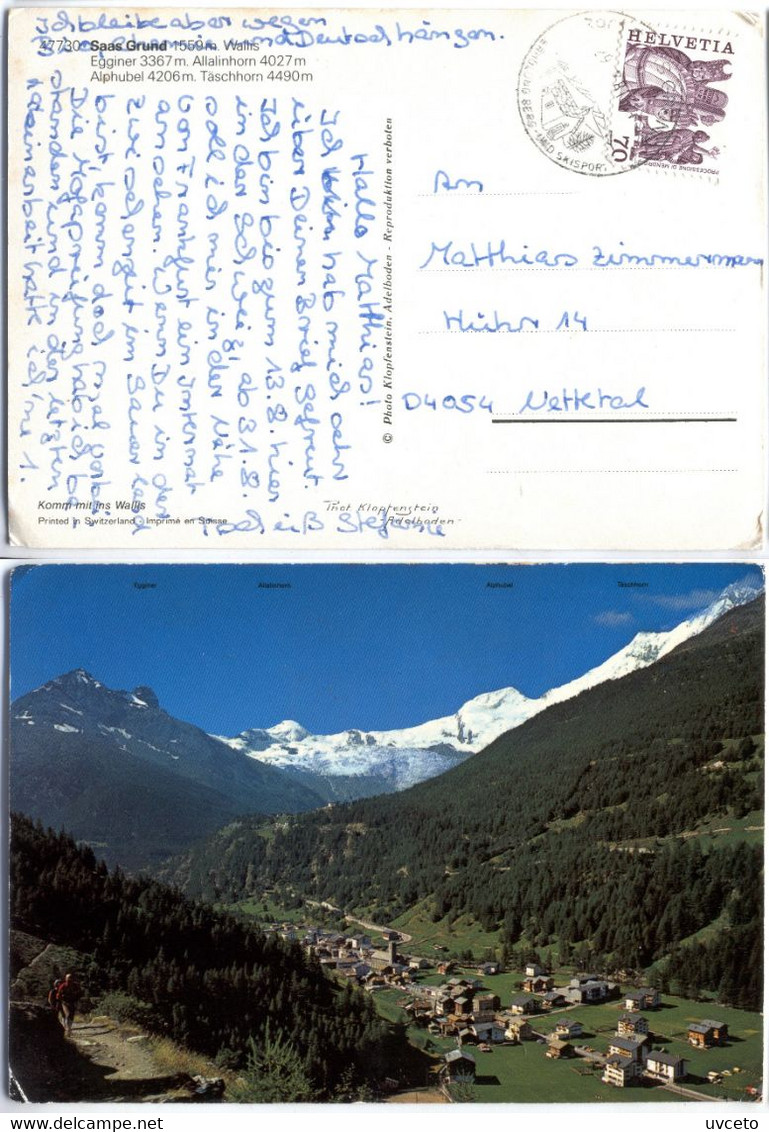 Ich bleibe aber wegen
und Deutsch hängen.
47730 Saas Grund 1559 m. Wallis
Egginer 3367 m. Allalinhorn 4027 m
Alphubel 4206 m. Täschhorn 4490 m
Hallo Matthias!
Ich hab mich sehr
über Deinen Brief gefreut.
Ich bin bis zum 13.8. hier
in der Schweiz, ab 31.8.
soll ich mir in der Nähe
von Frankfurt ein Internat
ansehen. Wenn Du in der
Zwischenzeit im Sauerland
bist, komm doch mal vorbei.
Die Mofaprüfung hab ich be-
standen und in der letzten
Lateinarbeit hatte ich 'ne 1.
Tschüß Stefanie
© Photo Klopfenstein, Adelboden - Reproduktion verboten
HELVETIA
70
PROCESSIONE DI MENDRISIO
SKISPORT
An
Matthias Zimmermann
Hühr 14
D4054 Nettetal
Komm mit ins Wallis
Printed in Switzerland - Imprimé en Suisse
Phot. Klopfenstein
- Adelboden -
Egginer
Allalinhorn
Alphubel
Täschhorn
uvceto